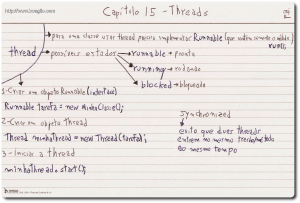 Capítulo 15 - Threads
thread
para uma classe usar thread precisa implementar Runnable (que contém somente o método
run());
possíveis estados
runnable → pronta
running → rodando
blocked → bloqueado
1-Criar um objeto Runnable (interface)
Runnable tarefa = new MinhaClasse();
2-Criar um objeto thread
Thread minhathread = new Thread(tarefa);
3-Iniciar a thread
minhathread.start();
Synchronized
evita que duas threads
entrem no mesmo trecho/método
ao mesmo tempo